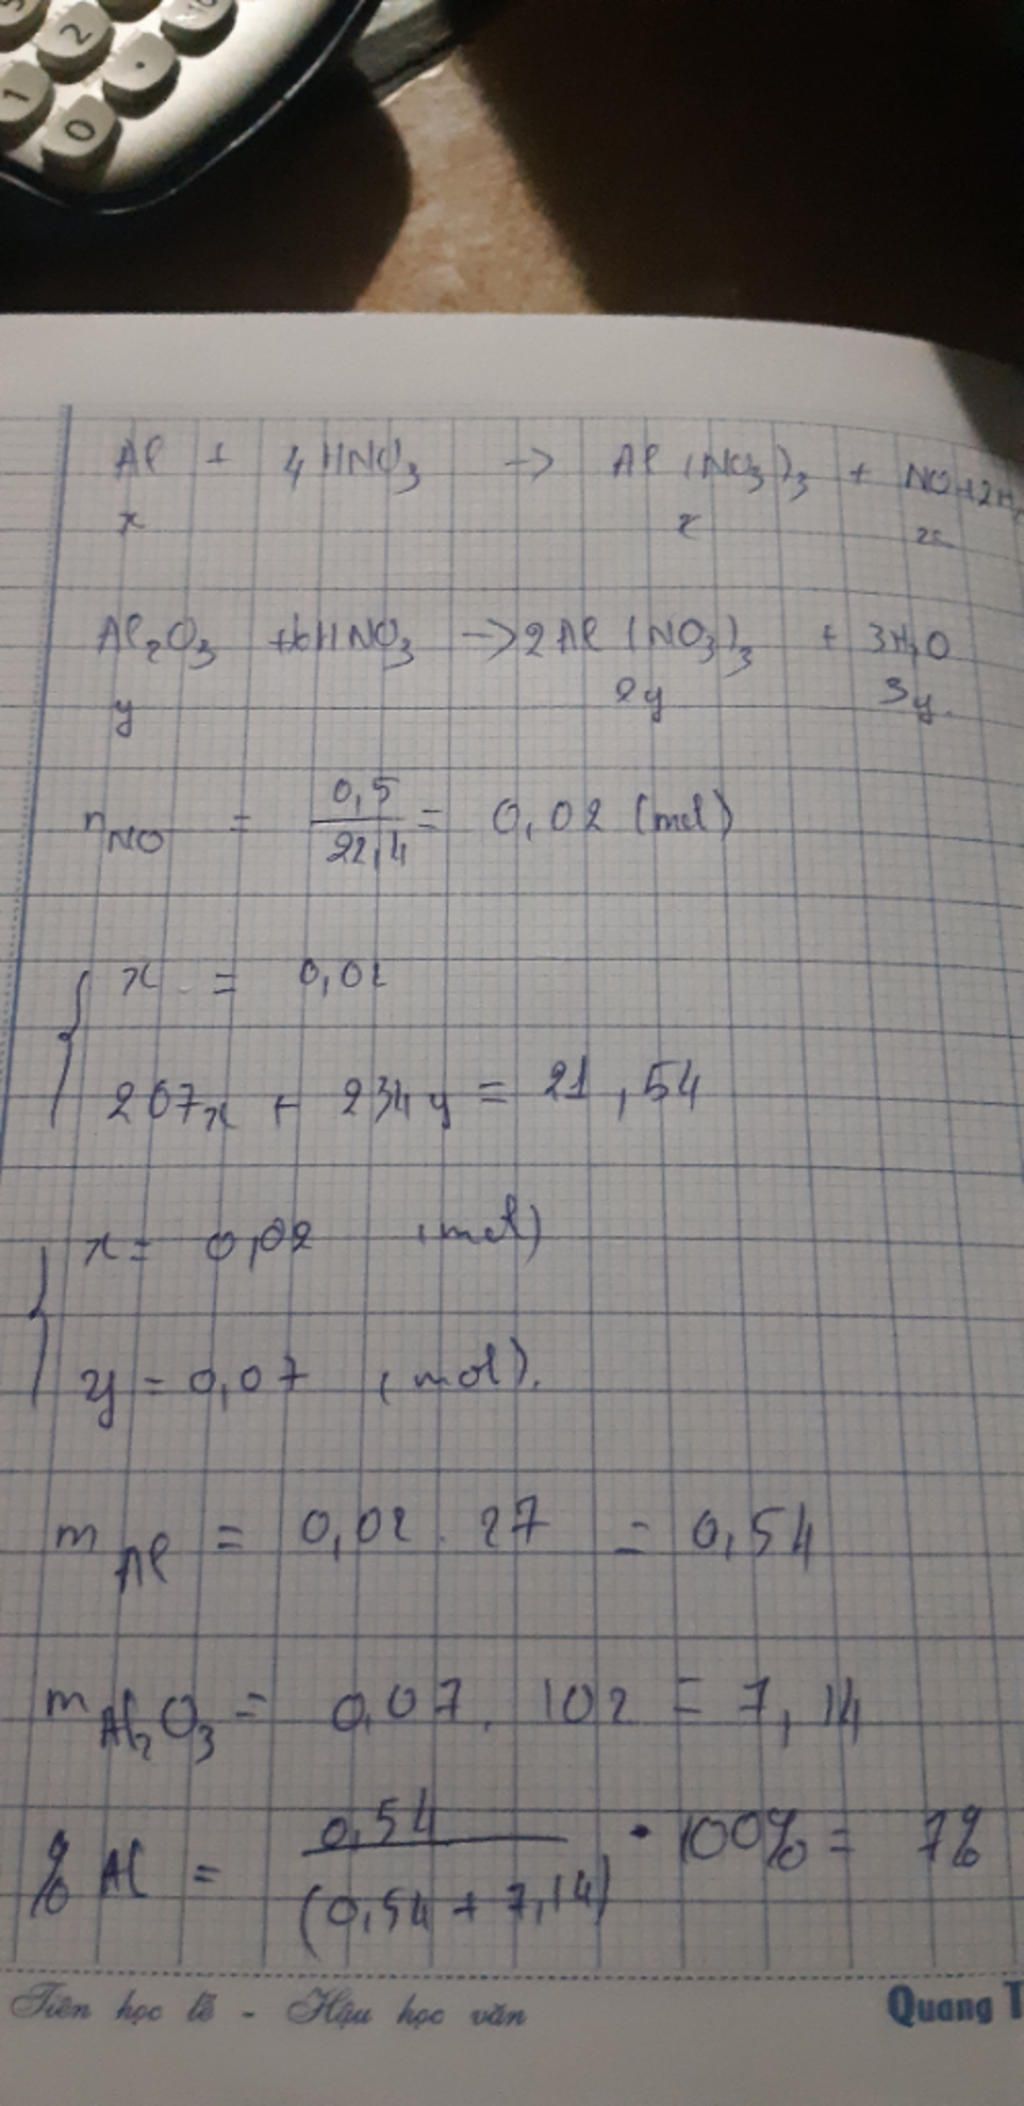 2
1
0
Al + 4HNO3 -> Al(NO3)3 + NO + 2H2
x x x
Al2O3 + 6HNO3 -> 2Al(NO3)3 + 3H2O
y 2y 3y.
nNO = 0,5/22,4 = 0,02 (mol)
{ x = 0,02
207x + 234y = 21,54
{ x = 0,02 (mol)
y = 0,07 (mol).
mAl = 0,02 . 27 = 0,54
mAl2O3 = 0,07 . 102 = 7,14
% Al = 0,54/(0,54 + 7,14) . 100% = 7%
Tiên học lễ - Hậu học văn
Quang T